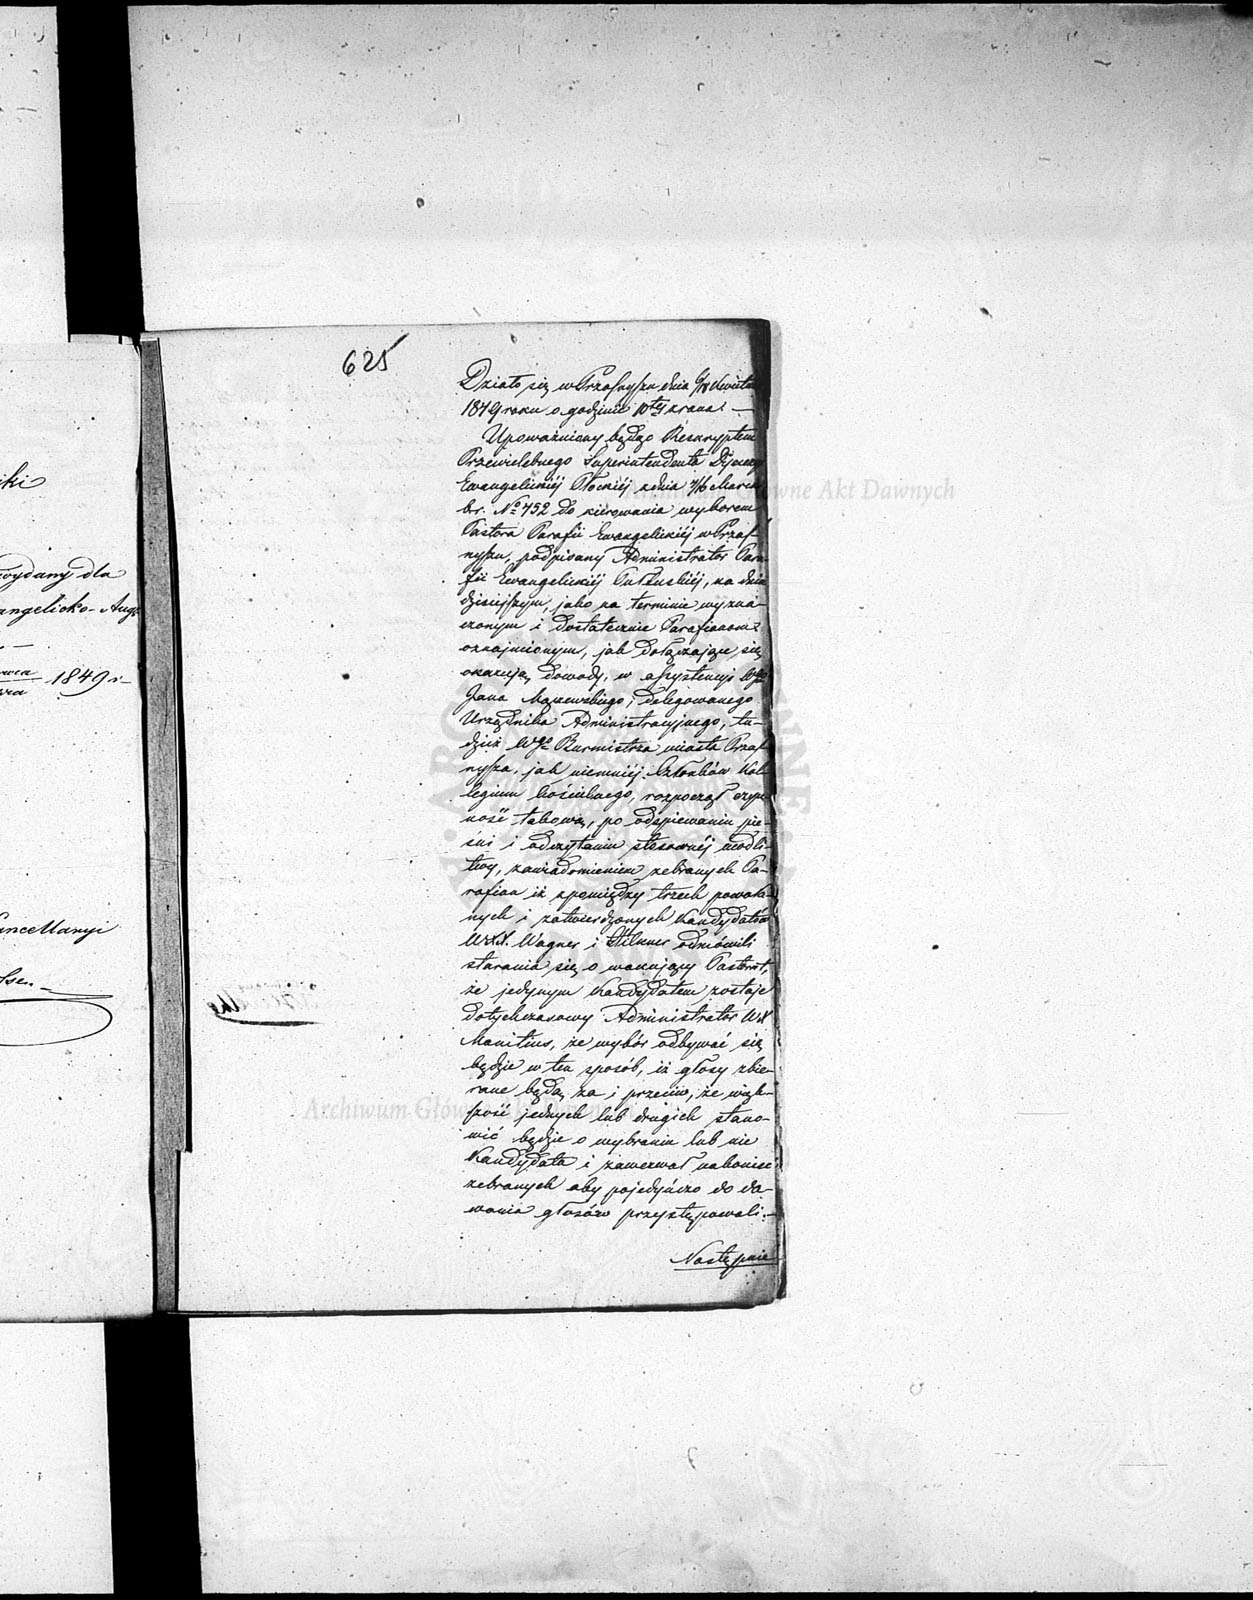 625
Działo się w Przasnyszu dnia Kwietnia
1849 roku o godzinie 10tej z rana. —
Upoważniony będąc Reskryptem
Przewielebnego Superintendenta Dyecezyi
Ewangelickiéj Płockiéj z dnia 4/16 Marca
br. No 752 do kierowania wyborem
Pastora Parafii Ewangelickiéj w Przas-
nyszu, podpisany Administrator Para
fii Ewangelickiéj Pułtuskiéj, na dniu
dzisiejszym, jako na terminie wyzna-
czonym i dostatecznie Parafianom
oznajmionym, jak dołączające się
okazują dowody, w assystencyi Wgo
Jana Mączewskiego, delegowanego
Urzędnika Administracyjnego, tu-
dzież Wgo Burmistrza miasta Przas
nysza, jak niemniéj Członków Kol
legium kościelnego, rozpoczął czyn
ność takową, po odśpiewaniu pie-
śni i odczytaniu stosownéj modli-
twy, zawiadomieniem zebranych Pa-
rafian iż z pomiędzy trzech powoła-
nych i zatwierdzonych Kandydatów
WXX. Wagner i odmówili
starania się o wakujący Pastorat,
że jedynym Kandydatem zostaje
dotychczasowy Administrator WX
Manitius, że wybór odbywać się
będzie w ten sposób, iż głosy zbie-
rane będą za i przeciw, że więk-
szość jednych lub drugich stano-
wić będzie o wybraniu lub nie
Kandydata i zawezwał nakoniec
zebranych aby pojedyńczo do da-
wania głosów przystępowali. —
Następnie
wydany dla
angelicko-Augs
1849 r
ancellaryi
Archiwum Główne Akt Dawnych